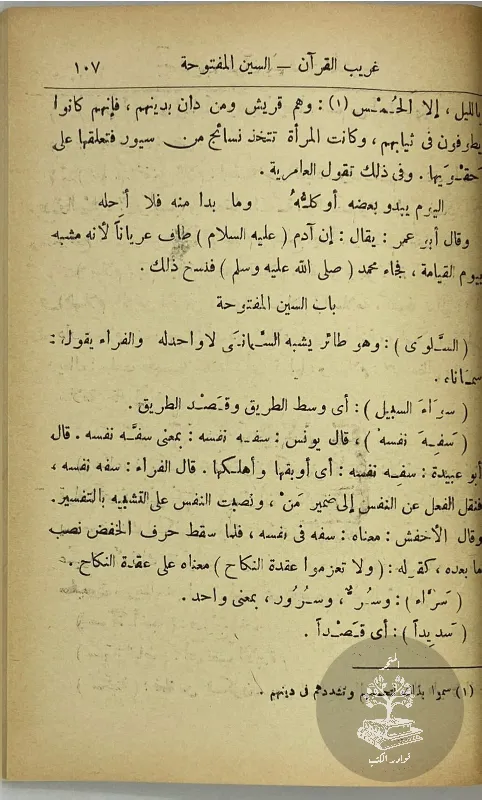 غريب القرآن — السين المفتوحة ١٠٧
بالليل ، إلا الحُمْس (١) : وهم قريش ومن دان بدينهم ، فإنهم كانوا
يطوفون فى ثيابهم ، وكانت المرأة تتخذ نسائج من سيور فتعلقها على
حَقْوَيها . وفى ذلك تقول العامرية .
اليوم يبدو بعضه أو كلُّهُ وما بدا منه فلا أحله
وقال أبو عمر : يقال : إن آدم ( عليه السلام ) طاف عرياناً لأنه مشبه
بيوم القيامة ، فجاء محمد ( صلى الله عليه وسلم ) فنسخ ذلك .
باب السين المفتوحة
( السَّلوَى ) : وهو طائر يشبه السُّمانَى لا واحد له والفراء يقول :
سماناة .
( سوَاءَ السبيل ) : أى وسط الطريق وقَصْد الطريق .
( سَفِهَ نفسه ) ، قال يونس : سفه نفسه : بمعنى سفَّه نفسه . قال
أبو عبيدة : سفه نفسه : أى أوبقها وأهلكها . قال الفراء : سفه نفسه ،
فنقل الفعل عن النفس إلى ضمير مَنْ ، ونصبت النفس على التشبيه بالتفسير .
وقال الأخفش : معناه : سفه فى نفسه ، فلما سقط حرف الخفض نصب
ما بعده ، كقوله : ( ولا تعزموا عقدة النكاح ) معناه على عقدة النكاح .
( سَرَّاء ) : وسُرٌّ ، وسُرُور ، بمعنى واحد .
( سَديداً ) : أى قَصْداً .
(١) سموا بذلك وتشددهم فى دينهم .
المتجر
نوادر الكتب